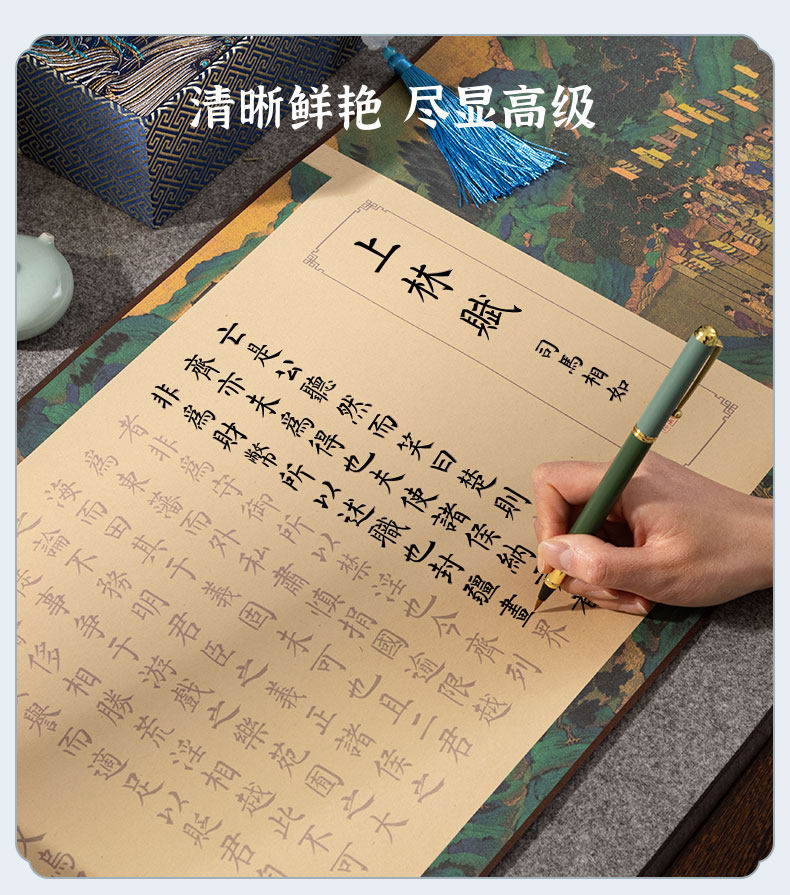 清晰鲜艳 尽显高级
上林賦
司馬相如
亡是公聽然而笑曰楚則
齊亦未為得也夫使諸侯納
非為財幣所以述職也封疆畫界
者非為守御所以禁淫也今齊列
為東藩而外私肅慎捐國逾限越
海而田其于義固未可也且二君
之論不務明君臣之義正諸侯之
徒事爭于游戲之樂苑囿之大
侈相勝荒淫相越此不可
譽而適足以貶君